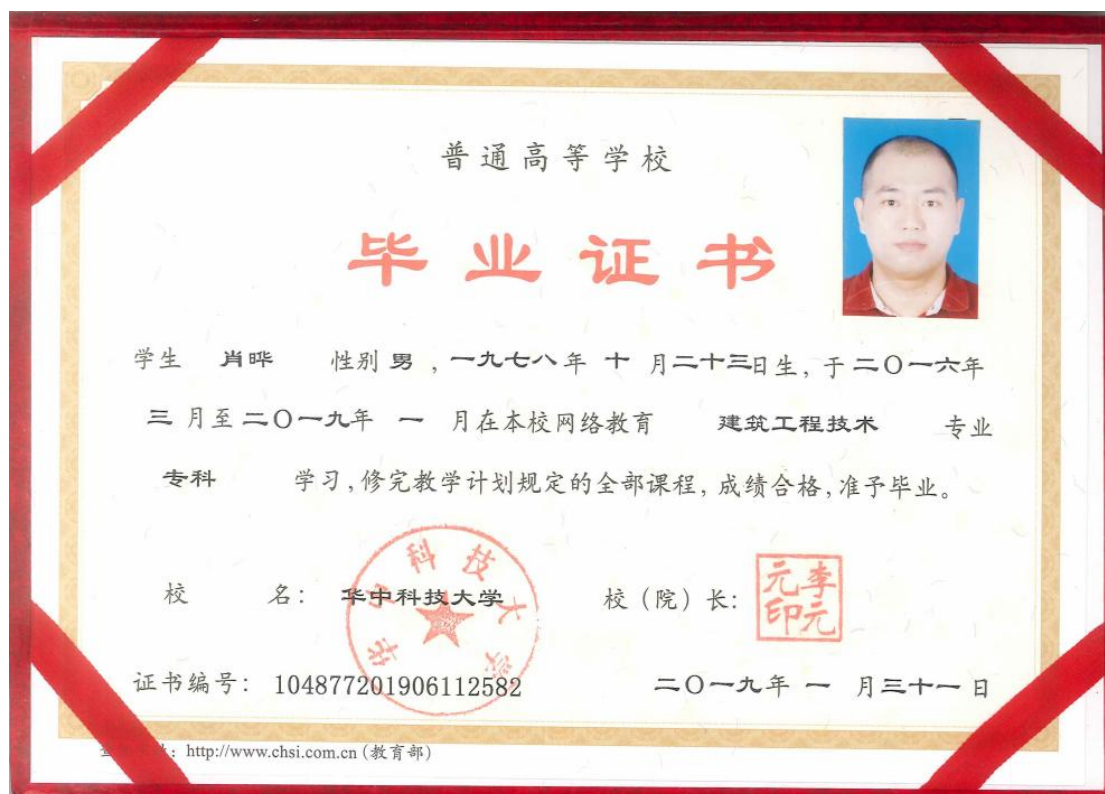 普通高等学校
毕业证书
学生 肖晔 性别 男 , 一九七八年 十 月二十三日生, 于 二〇一六年
三 月至 二〇一九年 一 月在本校网络教育 建筑工程技术 专业
专科 学习, 修完教学计划规定的全部课程, 成绩合格, 准予毕业。
校 名: 华中科技大学 校 (院) 长:
华中科技大学
李元元印
证书编号: 104877201906112582 二〇一九年 一 月三十一日
: http://www.chsi.com.cn (教育部)